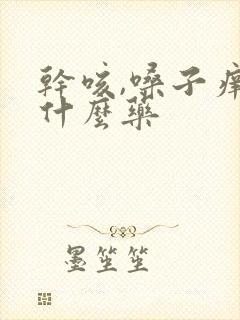 幹咳,嗓子痒
什麼藥
墨笙笙